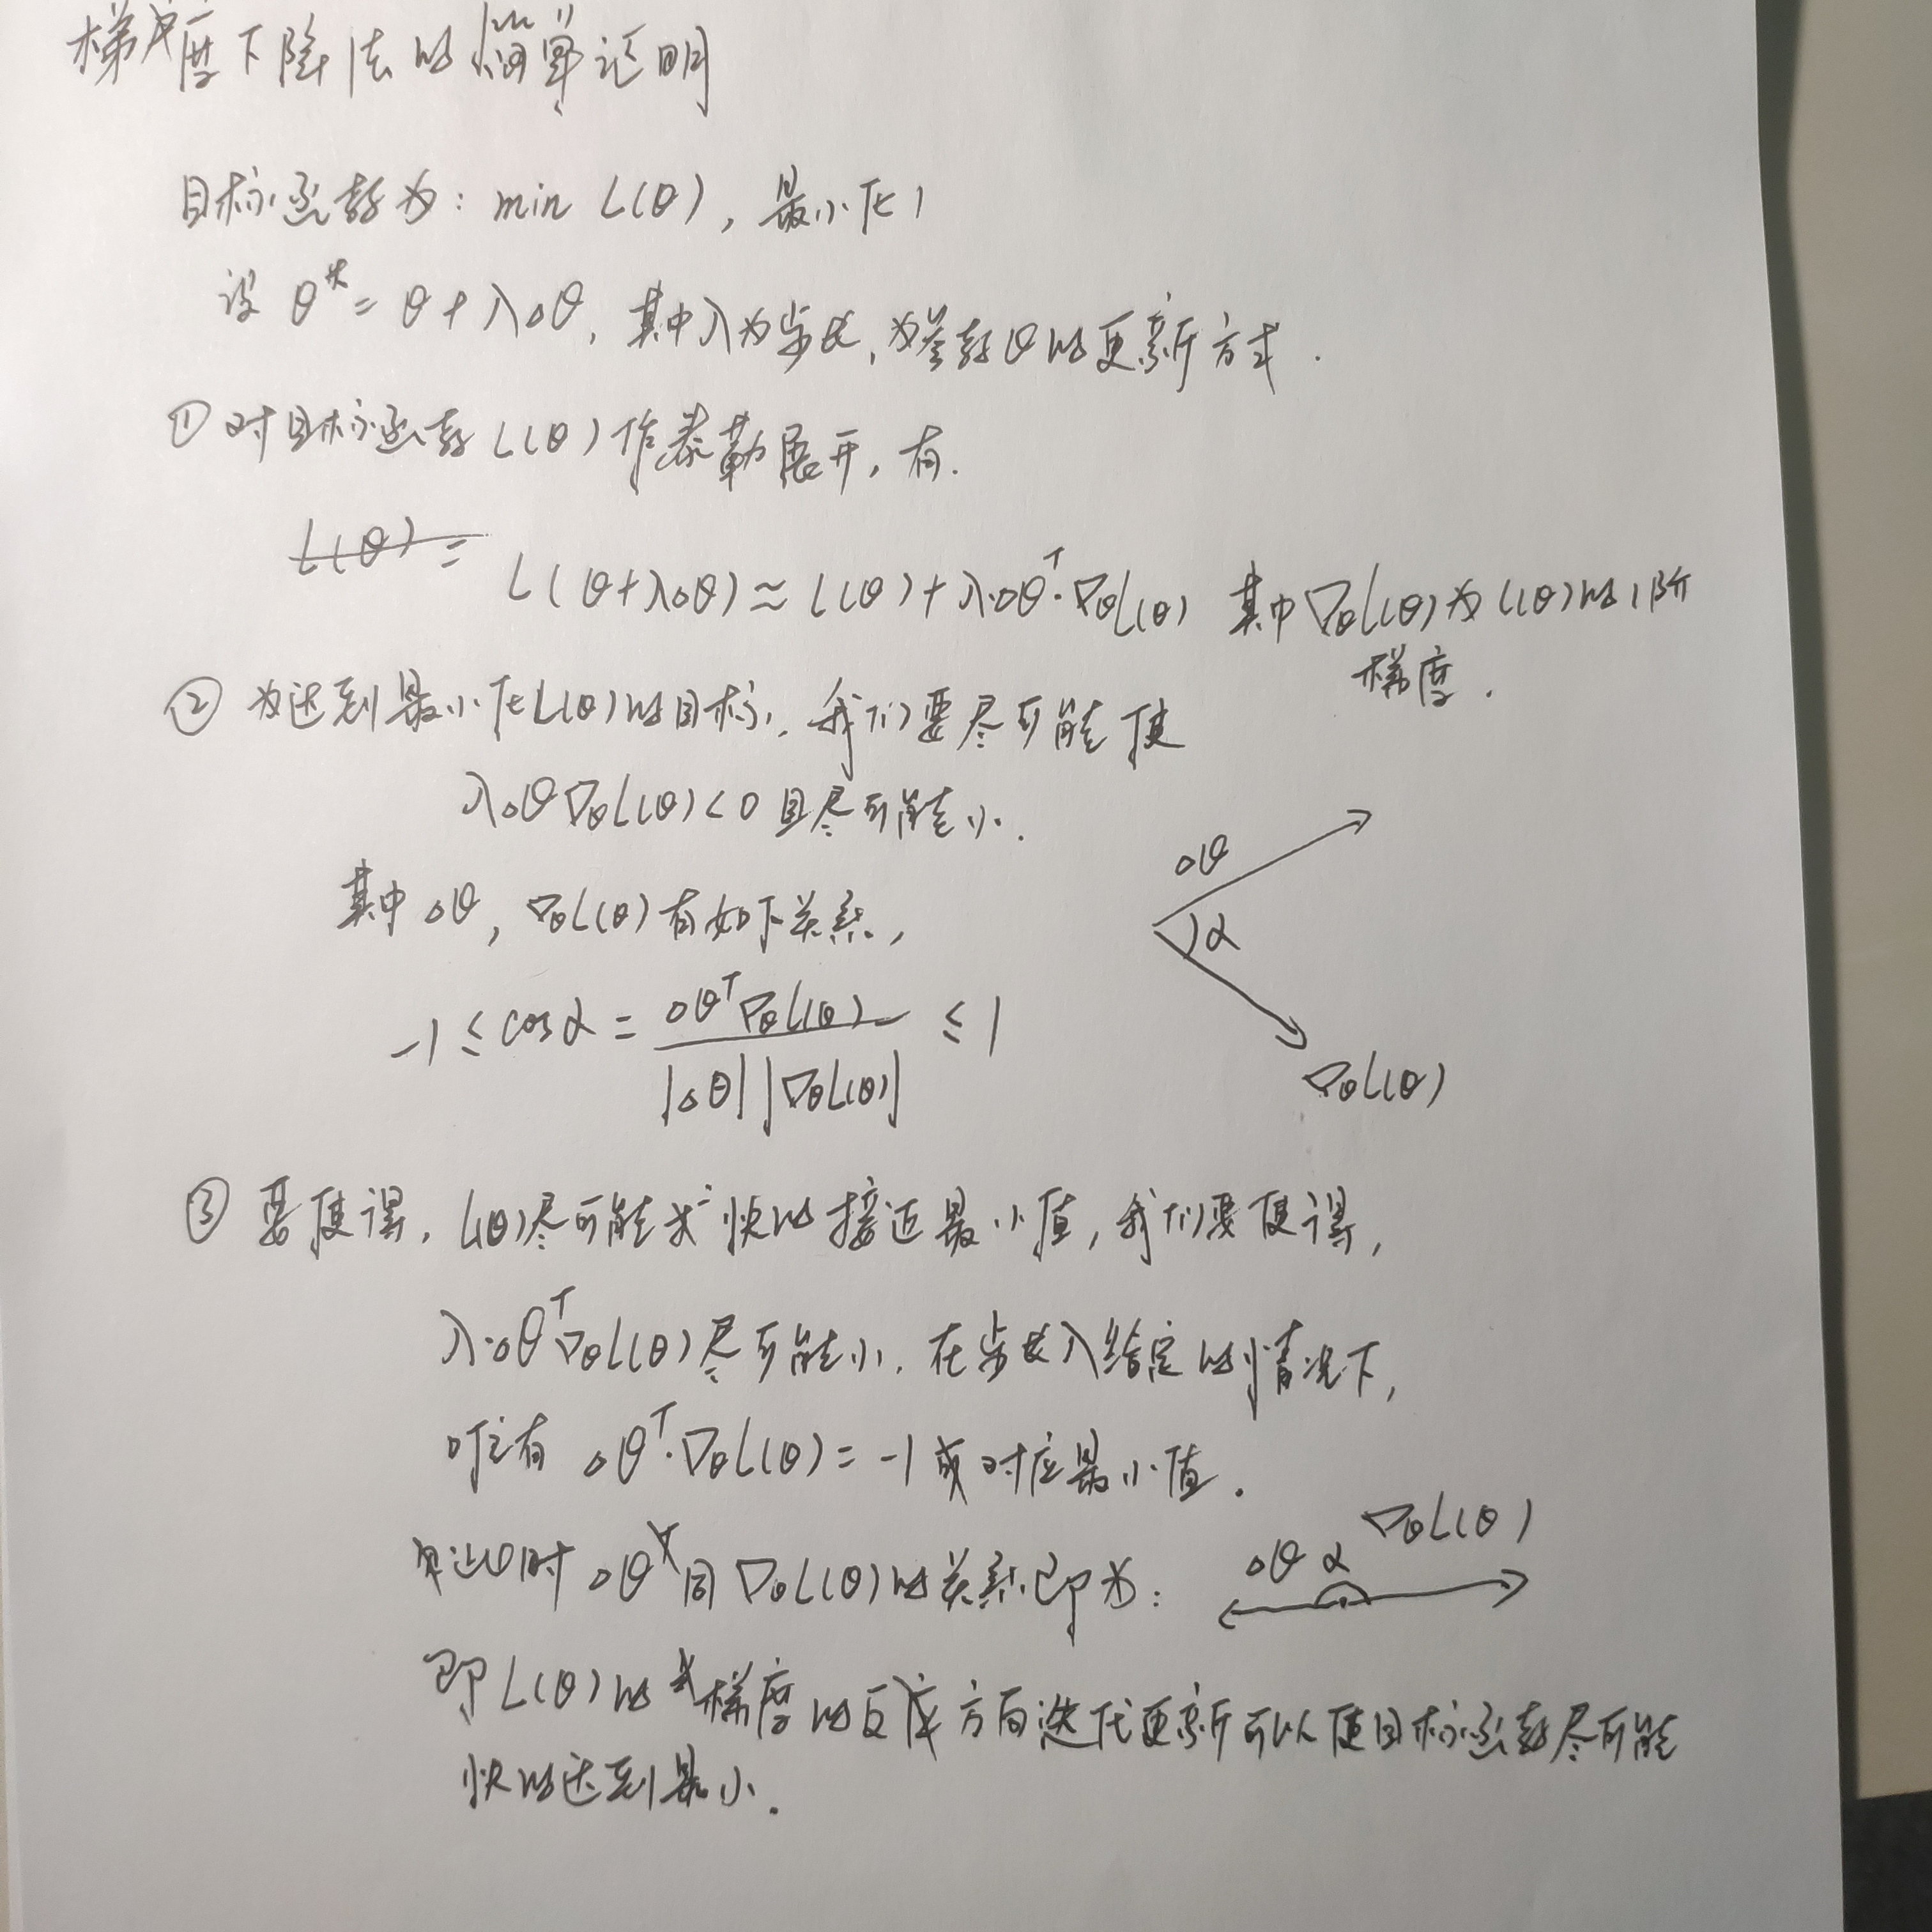 梯度下降法的简单证明
目标函数为: min L(θ), 最小化
设 θ* = θ + λΔθ, 其中λ为步长, 为参数θ的更新方式.
① 对目标函数 L(θ) 作泰勒展开, 有.
L(θ) =
L(θ+λΔθ) ≈ L(θ) + λ·Δθᵀ·∇θL(θ) 其中∇θL(θ)为L(θ)的1阶
梯度.
② 为达到最小化L(θ)的目标, 我们要尽可能使
λΔθ∇θL(θ) < 0 且尽可能小.
其中 Δθ, ∇θL(θ) 有如下关系,
Δθ
α
∇θL(θ)
-1 ≤ cosα = Δθᵀ∇θL(θ) / |Δθ| |∇θL(θ)| ≤ 1
③ 要使得, L(θ)尽可能快的接近最小值, 我们要使得,
λ·Δθᵀ∇θL(θ)尽可能小. 在步长λ给定的情况下,
唯有 Δθᵀ·∇θL(θ) = -1 或对应最小值.
时 Δθ 同 ∇θL(θ) 的关系即为:
Δθ α ∇θL(θ)
即 L(θ) 的梯度的反方向迭代更新可以使目标函数尽可能
快的达到最小.